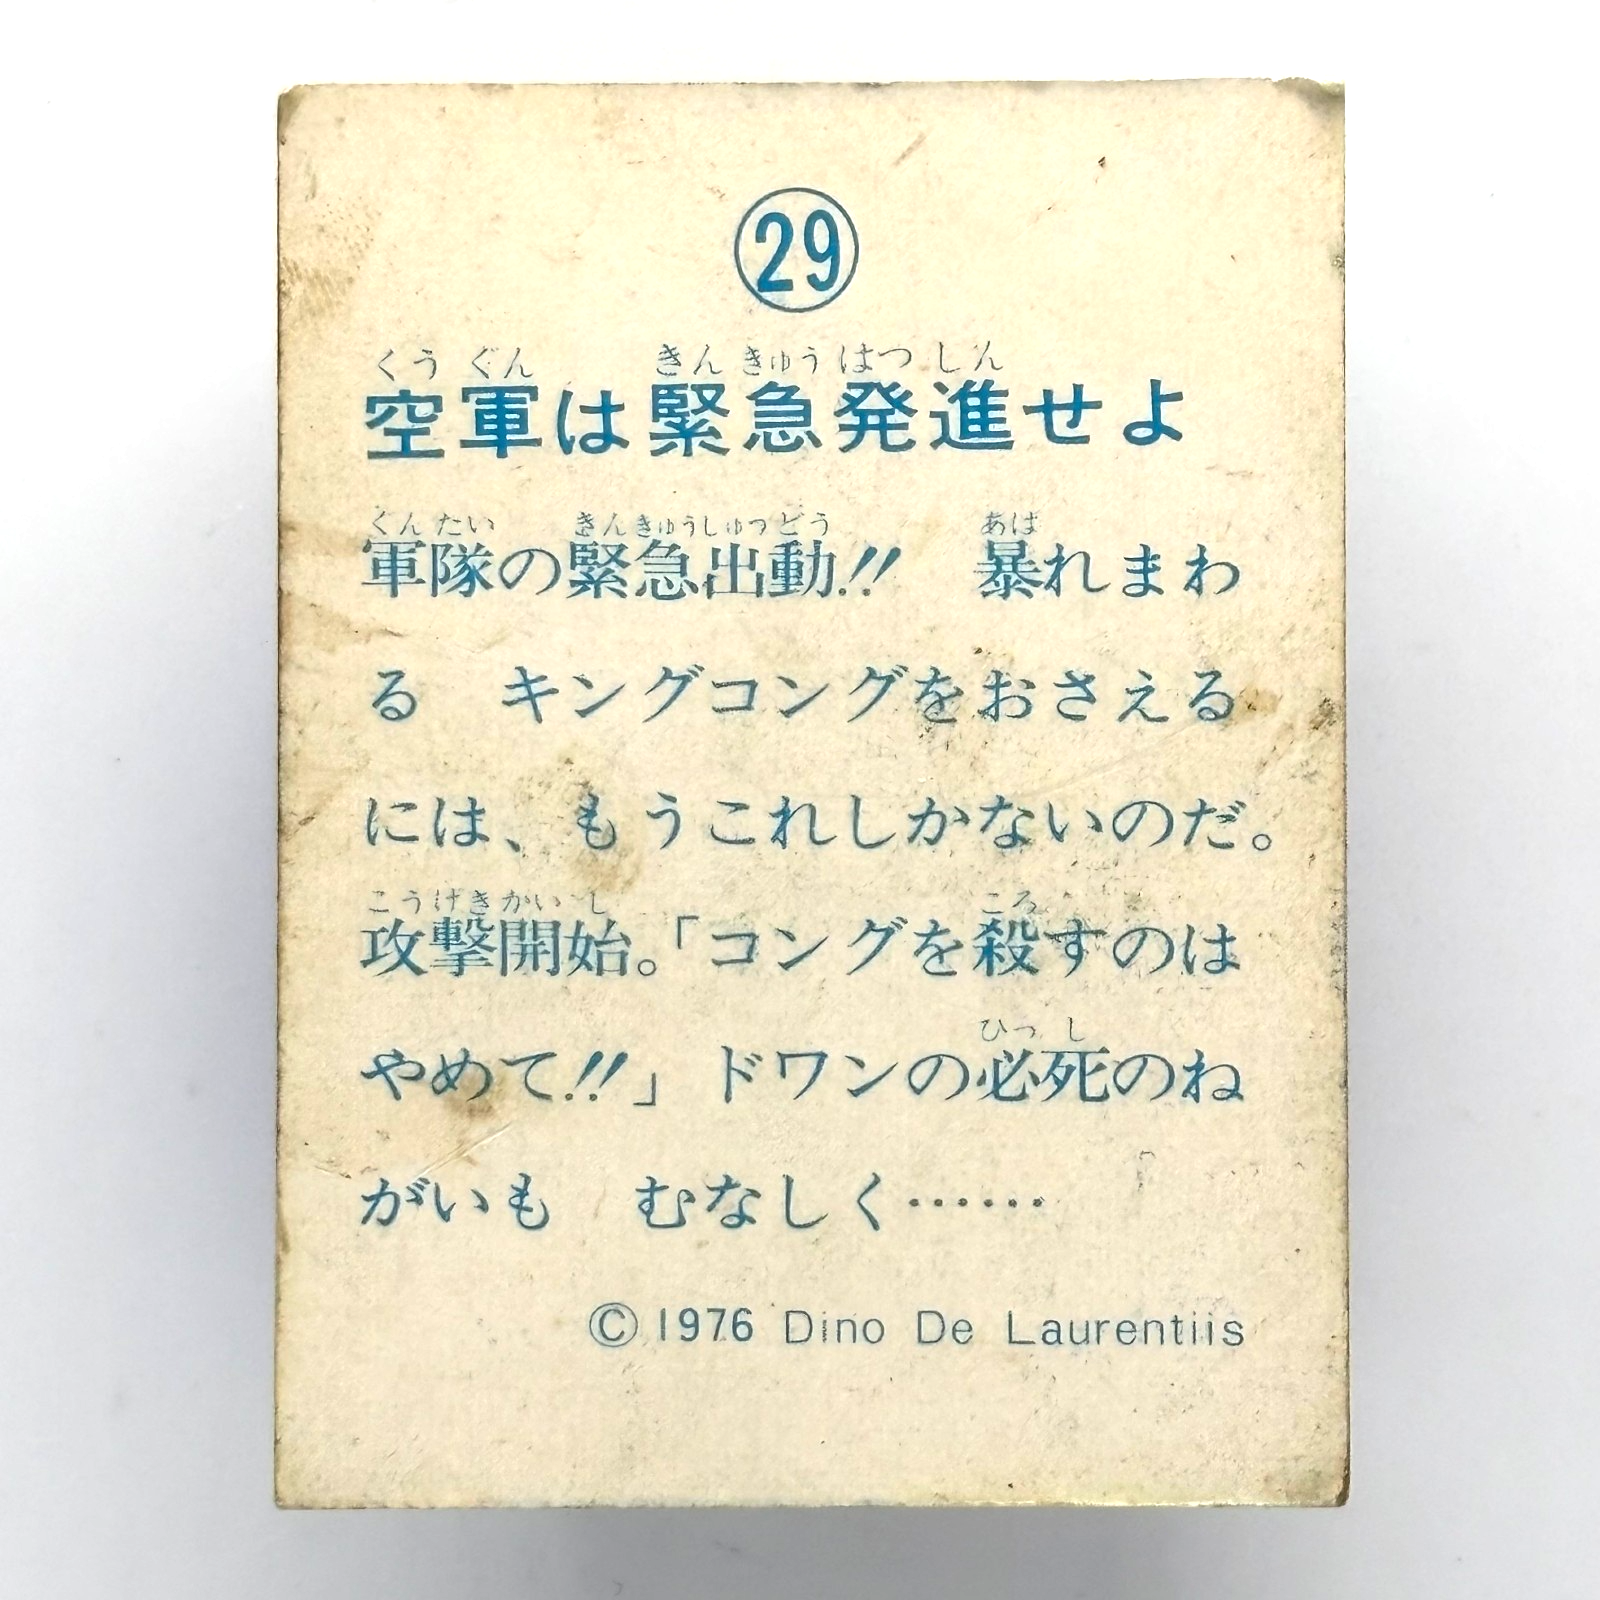 29
くうぐん きんきゅうはつしん
空軍は緊急発進せよ
ぐんたい きんきゅうしゅつどう あば
軍隊の緊急出動!! 暴れまわ
る キングコングをおさえる
には、もうこれしかないのだ。
こうげきかいし ころ
攻撃開始。「コングを殺すのは
ひっし
やめて!!」ドワンの必死のね
がいも むなしく……
©1976 Dino De Laurentiis